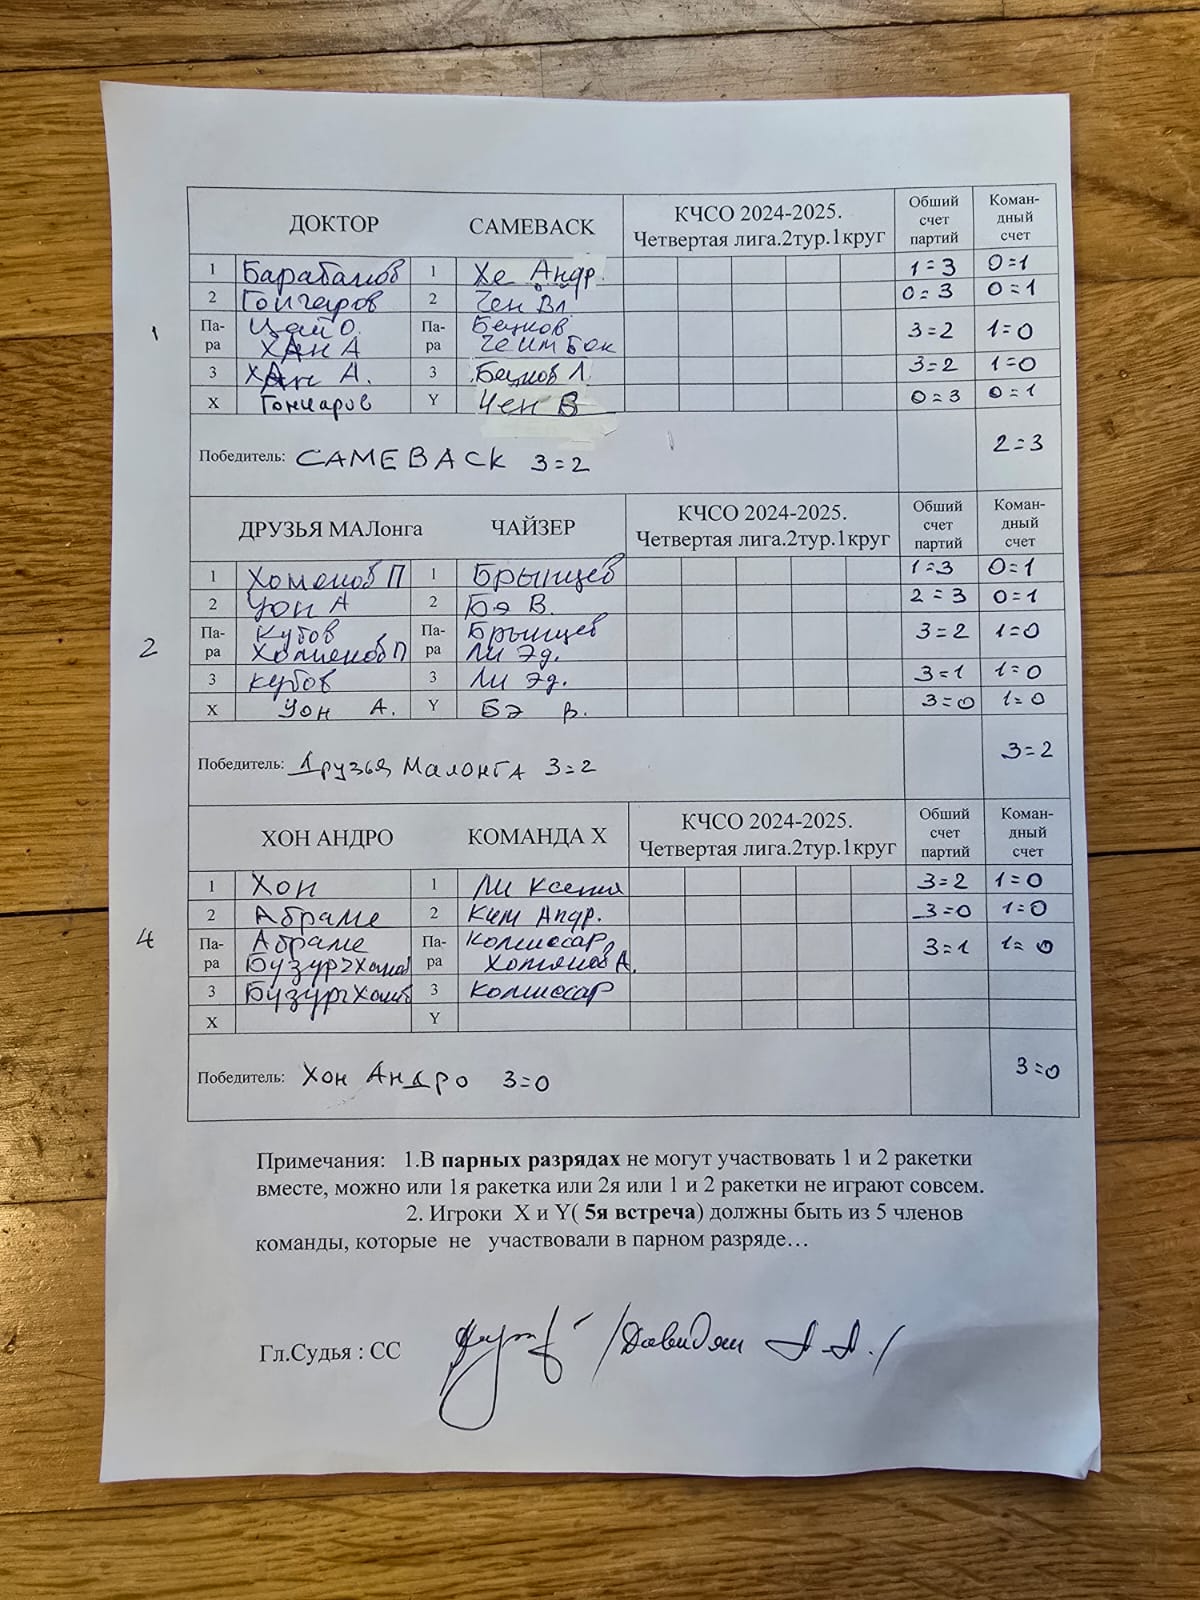 ДОКТОР САМЕВАСК КЧСО 2024-2025. Четвертая лига.2тур.1круг Обший счет партий Коман-дный счет
1 Барабанов 1 Хе Андр. 1=3 0=1
2 Гончаров 2 Чен Вл. 0=3 0=1
1 Па-ра Цай О. Па-ра Бецков 3=2 1=0
ХАн А
3 ХАн А. 3 Бецков Л. 3=2 1=0
X Гончаров Y Чен В 0=3 0=1
Победитель: САМЕВАСК 3=2 2=3
ДРУЗЬЯ МАЛонга ЧАЙЗЕР КЧСО 2024-2025. Четвертая лига.2тур.1круг Обший счет партий Коман-дный счет
1 Хоменов П 1 Брынцев 1=3 0=1
2 Уон А 2 Бэ В. 2=3 0=1
2 Па-ра Кубов Па-ра Брынцев 3=2 1=0
Хоменов П Ли Эд.
3 Кубов 3 Ли Эд. 3=1 1=0
X Уон А. Y Бэ В. 3=0 1=0
Победитель: Друзья Малонга 3=2 3=2
ХОН АНДРО КОМАНДА X КЧСО 2024-2025. Четвертая лига.2тур.1круг Обший счет партий Коман-дный счет
1 Хон 1 Ли Ксения 3=2 1=0
2 Абраме 2 Ким Андр. 3=0 1=0
4 Па-ра Абраме Па-ра Комиссар, 3=1 1=0
3 3 Комиссар
X Y
Победитель: Хон Андро 3=0 3=0
Примечания: 1.В парных разрядах не могут участвовать 1 и 2 ракетки
вместе, можно или 1я ракетка или 2я или 1 и 2 ракетки не играют совсем.
2. Игроки X и Y( 5я встреча) должны быть из 5 членов
команды, которые не участвовали в парном разряде…
Гл.Судья : СС /Давидян А.А./